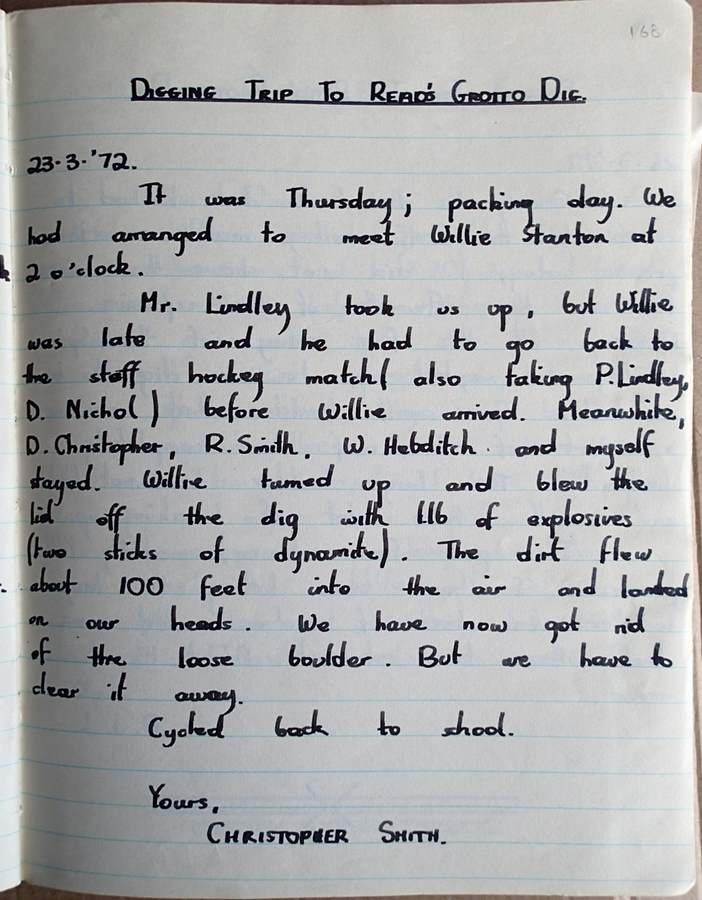 168
DIGGING TRIP TO READ'S GROTTO DIG.
23·3·'72.
It was Thursday; packing day. We
had arranged to meet Willie Stanton at
2 o'clock.
Mr. Lindley took us up, but Willie
was late and he had to go back to
the staff hockey match( also taking P.Lindley,
D. Nichol) before Willie arrived. Meanwhile,
D. Christopher, R. Smith, W. Hebditch and myself
stayed. Willie turned up and blew the
lid off the dig with 1lb of explosives
(two sticks of dynamite). The dirt flew
about 100 feet into the air and landed
on our heads. We have now got rid
of the loose boulder. But we have to
clear it away.
Cycled back to shool.
Yours,
CHRISTOPHER SMITH.